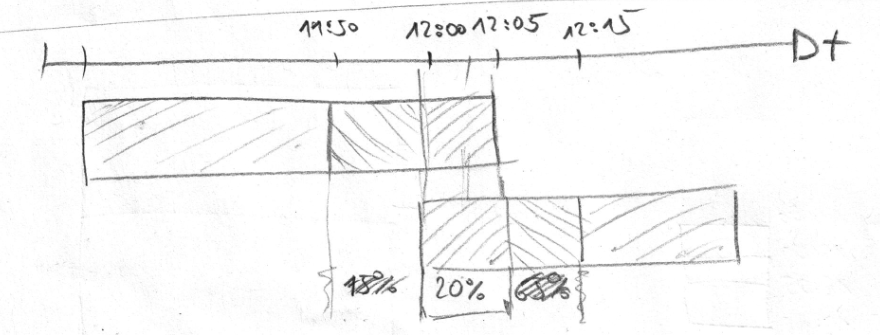 11:50 12:00 12:05 12:15
Dt
20%